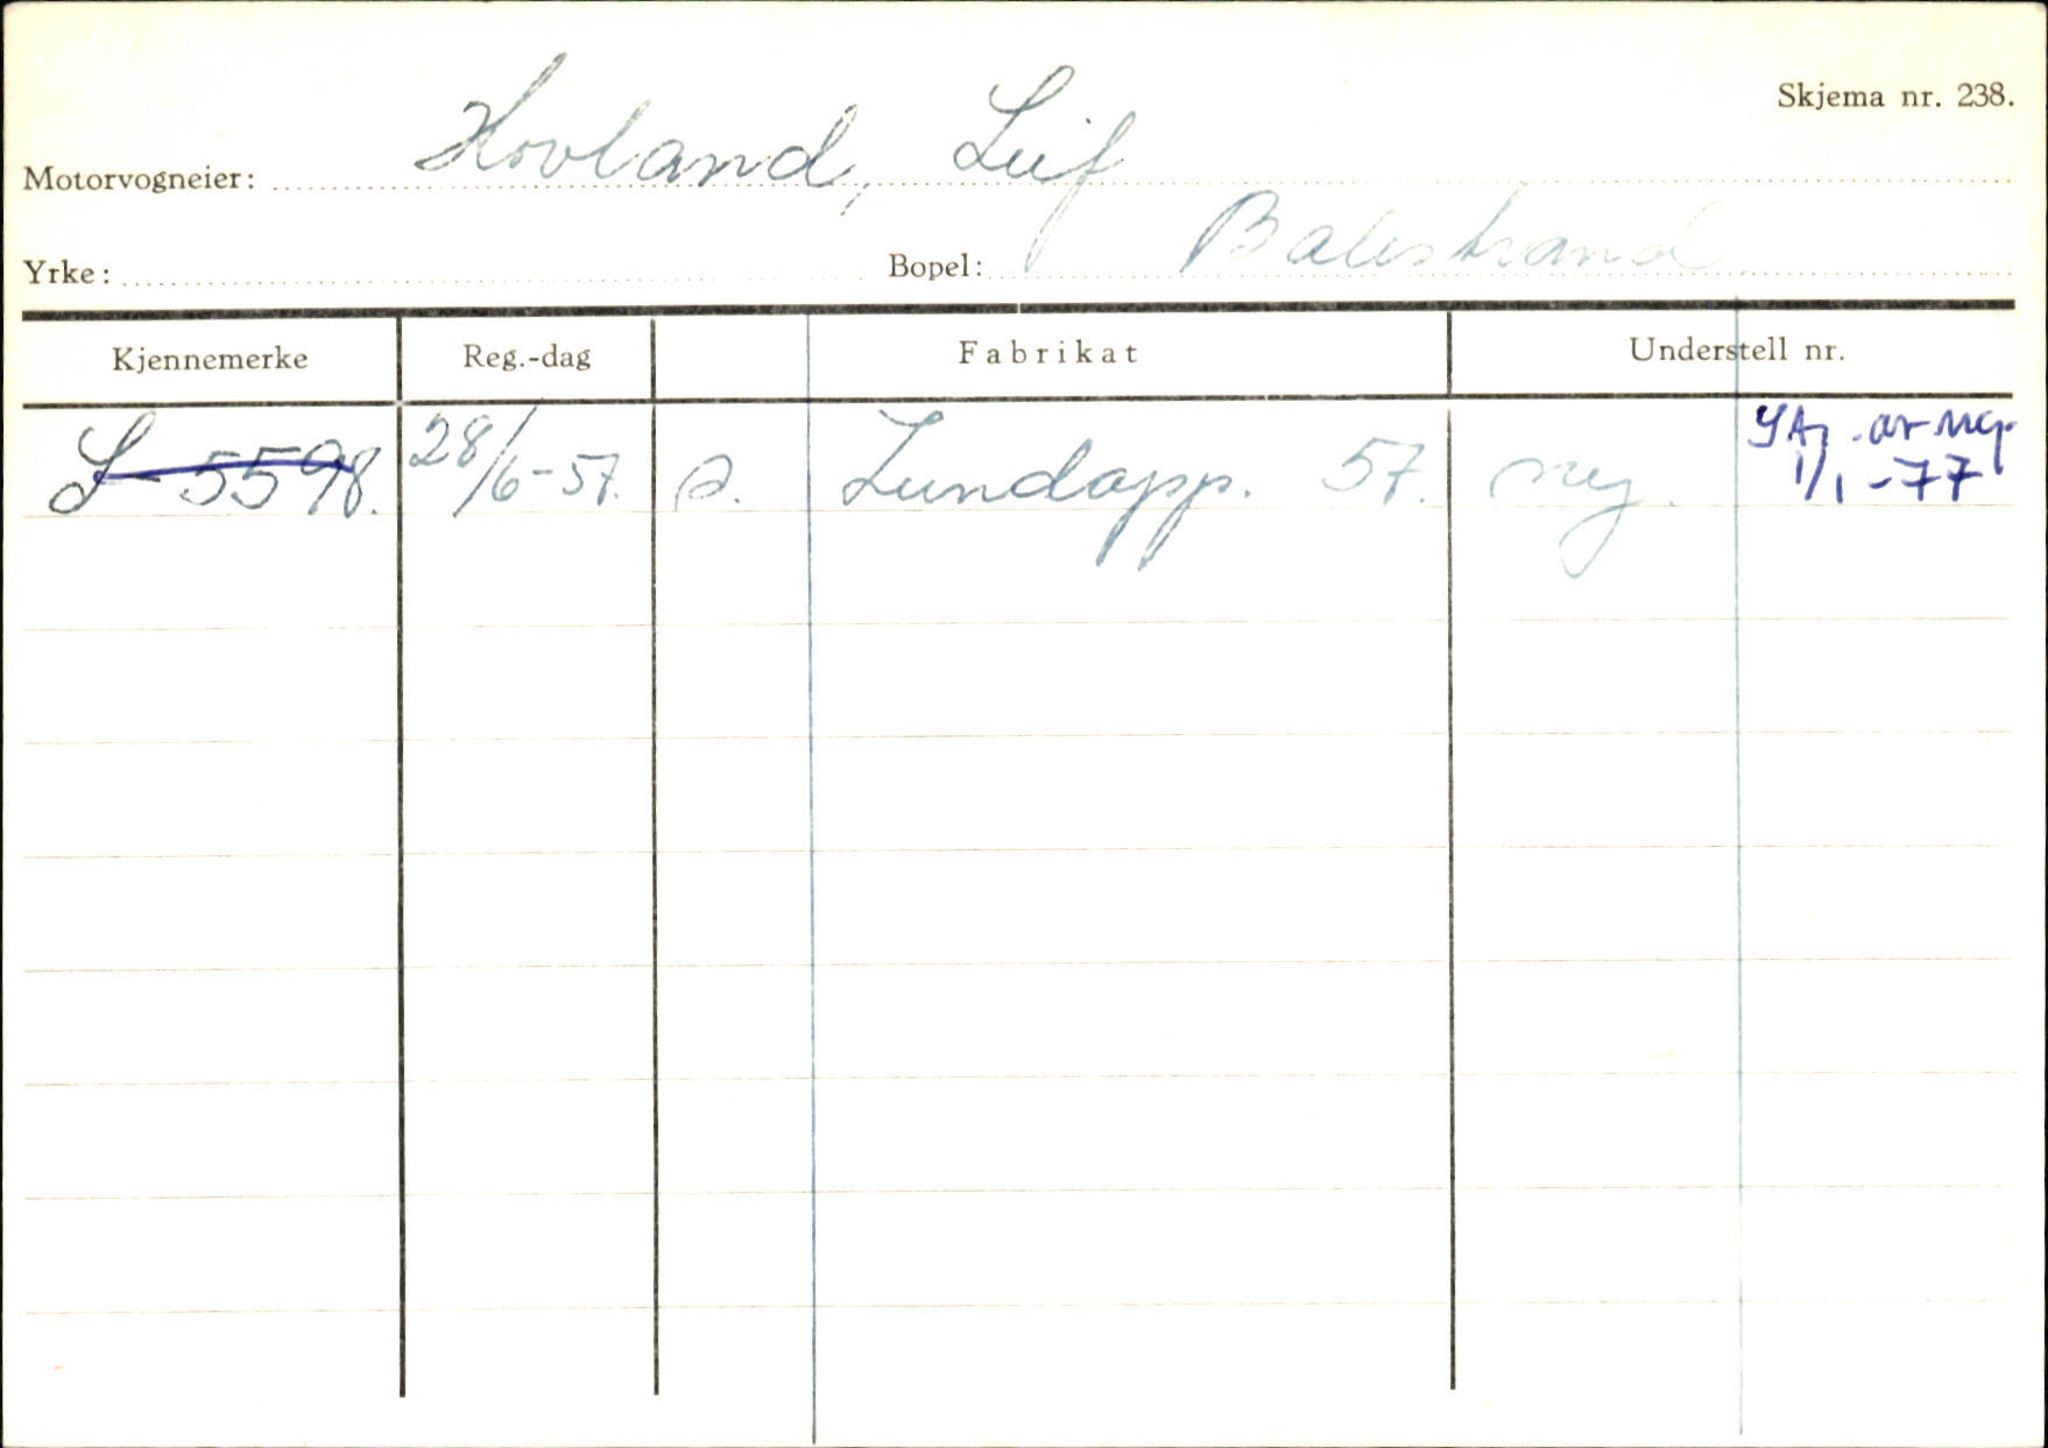 Skjema nr. 238.
Motorvogneier: Hovland, Leif
Yrke: Bopel: Balestrand
Kjennemerke Reg.-dag Fabrikat Understell nr.
S-5598. 28/6-57. Lundapp. 57. ny. av reg.
1/1-77